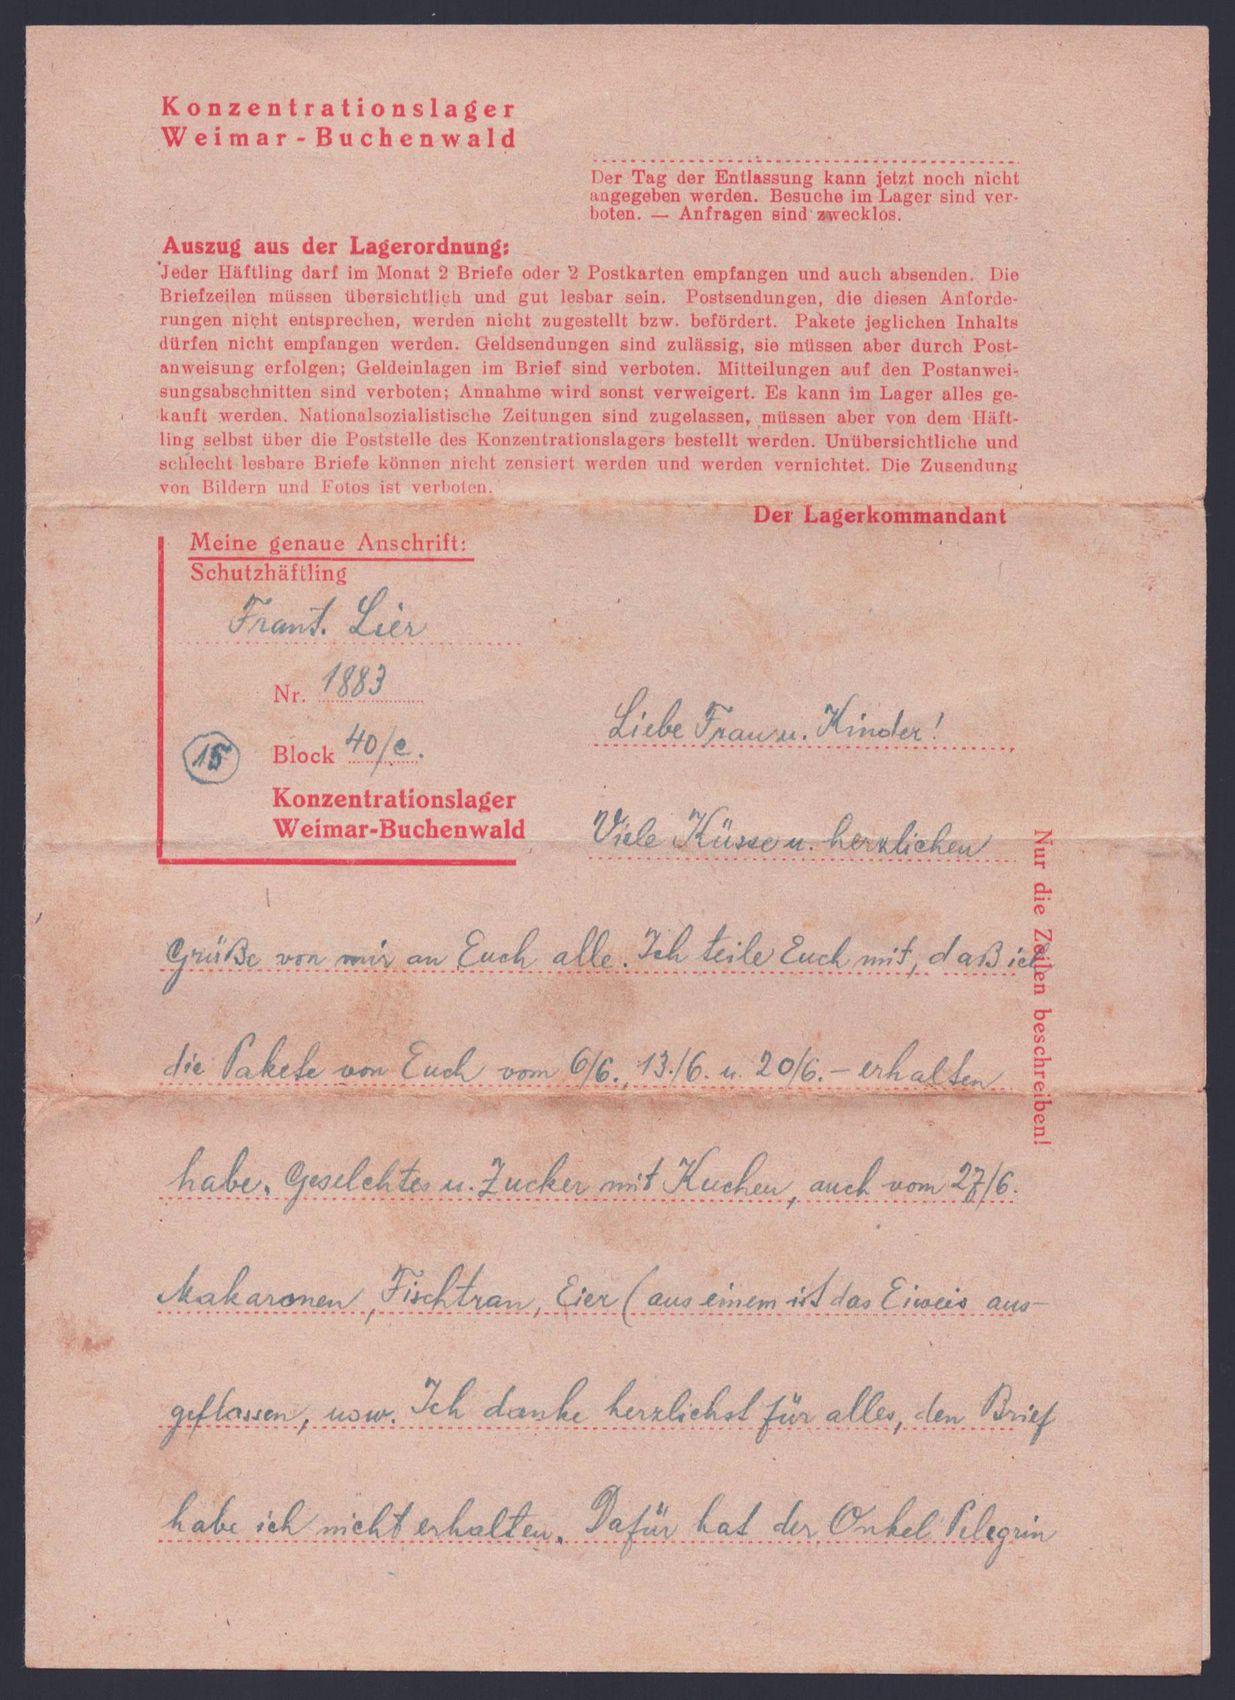 Konzentrationslager
Weimar-Buchenwald
Der Tag der Entlassung kann jetzt noch nicht
angegeben werden. Besuche im Lager sind ver-
boten. — Anfragen sind zwecklos.
Auszug aus der Lagerordnung:
Jeder Häftling darf im Monat 2 Briefe oder 2 Postkarten empfangen und auch absenden. Die
Briefzeilen müssen übersichtlich und gut lesbar sein. Postsendungen, die diesen Anforde-
rungen nicht entsprechen, werden nicht zugestellt bzw. befördert. Pakete jeglichen Inhalts
dürfen nicht empfangen werden. Geldsendungen sind zulässig, sie müssen aber durch Post-
anweisung erfolgen; Geldeinlagen im Brief sind verboten. Mitteilungen auf den Postanwei-
sungsabschnitten sind verboten; Annahme wird sonst verweigert. Es kann im Lager alles ge-
kauft werden. Nationalsozialistische Zeitungen sind zugelassen, müssen aber von dem Häft-
ling selbst über die Poststelle des Konzentrationslagers bestellt werden. Unübersichtliche und
schlecht lesbare Briefe können nicht zensiert werden und werden vernichtet. Die Zusendung
von Bildern und Fotos ist verboten.
Der Lagerkommandant
Meine genaue Anschrift:
Schutzhäftling
Frant. Lier
Nr. 1883
15
Block 40/c.
Konzentrationslager
Weimar-Buchenwald
Liebe Frau u. Kinder!
Viele Küsse u. herzlichen
Grüße von mir an Euch alle. Ich teile Euch mit, daß ich
die Pakete von Euch vom 6/6., 13./6. u. 20/6. - erhalten
habe. Geselchtes u. Zucker mit Kuchen, auch vom 27/6.
Makaronen, Fischtran, Eier (aus einem ist das Eiweis aus-
geflossen, usw. Ich danke herzlichst für alles, den Brief
habe ich nicht erhalten. Dafür hat der Onkel Pelegrin
Nur die Zeilen beschreiben!